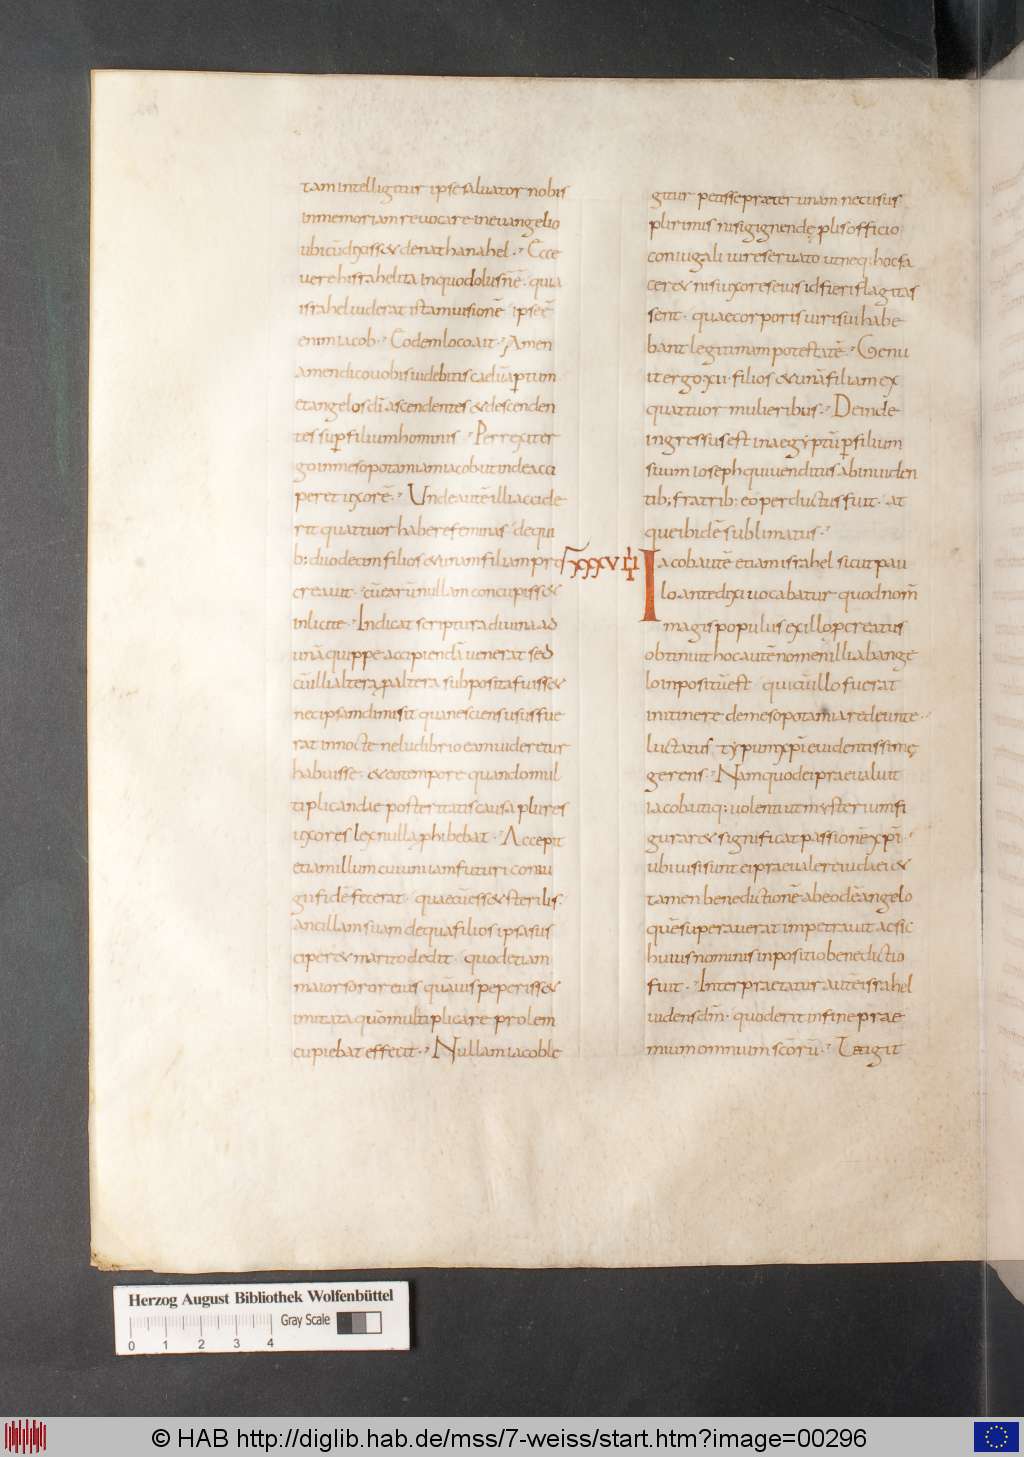 tam intelligitur ipse saluator nobis
in memoriam reuocare in euangelio
ubi cũ dixiss& de nathanahel · Ecce
uere hisrahelita in quo dolus ñ ẽ · quia
israhel uiderat istam uisionẽ ipse ẽ
enim iacob · Eodem loco ait · Amen
amen dico uobis uidebitis caelũ aptum
et angelos dĩ ascendentes & descenden
tes sup filium hominis · Perrexit er
go in mesopotamiam iacob ut inde acci
peret uxorẽ · Unde autẽ illi accide
rit quattuor habere feminas de qui
b; duodecim filios & unam filiam pro
creauit · cũ earũ nullam concupiss&
inlicite · Indicat scriptura diuina ad
unã quippe accipiendã uenerat sed
cũ illi altera p altera subposita fuiss&
nec ipsam dimisit qua nesciens usus fue
rat in nocte ne ludibrio eam uideretur
habuisse · & eo tempore quando mul
tiplicandae posteritatis causa plures
uxores lex nulla phibebat · Accepit
etiam illum cui uni iam futuri coniu
gii fidẽ fecerat · quae cũ ess& sterilis ·
ancillam suam de qua filios ipsa sus
ciper& marito dedit · quod etiam
maior soror eius quãuis peperiss&
imitata quõ multiplicare prolem
cupiebat effecit · Nullam iacob le
gitur petisse praeter unam nec usus
plurimis nisi gignendę plis officio
coniugali iure seruato ut neq; hoc fa
cer& nisi uxores eius id fieri flagitas
sent · quae corporis uiri sui habe
bant legitimam potestatẽ · Genu
it ergo xii · filios & unã filiam ex
quattuor mulieribus · Deinde
ingressus est in aegyptũ p filium
suum ioseph qui uenditus ab inuiden
tib; fratrib; eo perductus fuit · at
que ibidẽ sublimatus ·
xxxxviii
Iacob autẽ etiam israhel sicut pau
lo ante dixi uocabatur quod nom̃
magis populus ex illo pcreatus
obtinuit hoc autẽ nomen illi ab ange
lo inpositũ est qui cũ illo fuerat
in itinere de mesopotamia redeunte
luctatus typum xpi euidentissimę
gerens · Nam quod ei praeualuit
iacob utiq; uolenti ut mysterium fi
gurar& significat passionẽ xpi ·
ubi uisi sunt ei praeualere iudaei &
tamen benedictionẽ ab eodẽ angelo
quẽ superauerat impetrauit ac sic
huius nominis inpositio benedictio
fuit · Interpraetatur autẽ israhel
uidens dm̃ · quod erit in fine prae
mium omnium scõrũ · Tetigit
Herzog August Bibliothek Wolfenbüttel
Gray Scale
0 1 2 3 4
© HAB http://diglib.hab.de/mss/7-weiss/start.htm?image=00296